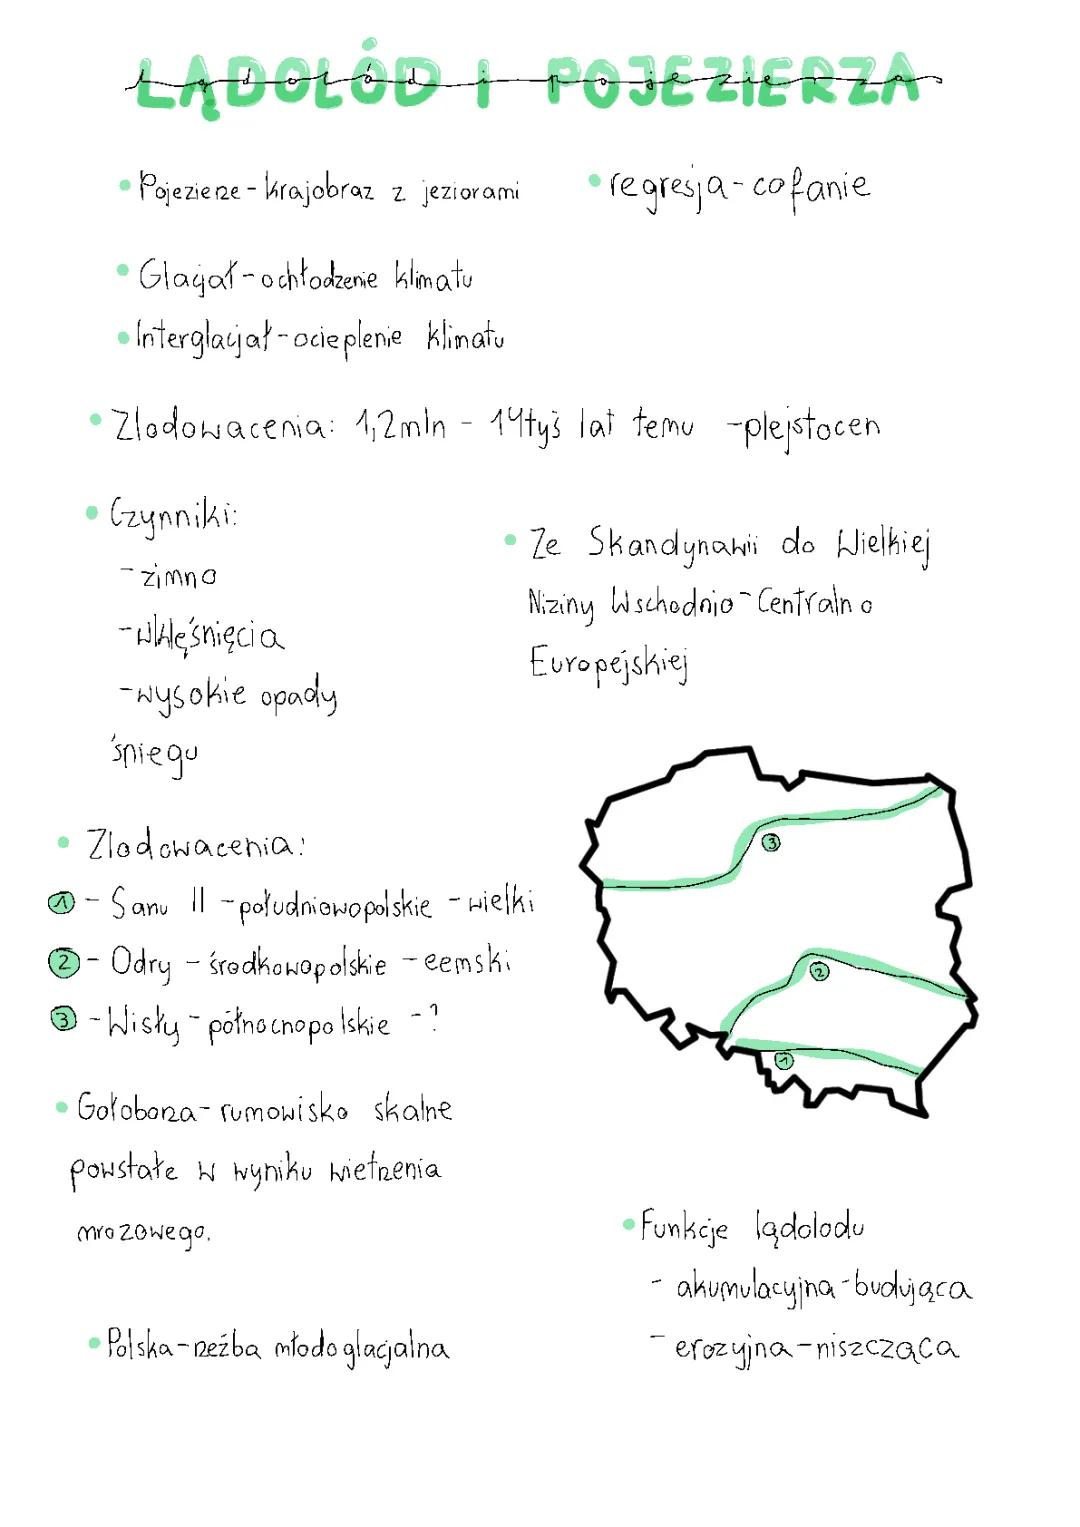 LĄDOLÓD I POJEZIERZA
• Pojezierze - krajobraz z jeziorami
• regresja - cofanie
• Glacjał - ochłodzenie klimatu
• Interglacjał - ocieplenie klimatu
• Zlodowacenia: 1,2mln - 14tyś lat temu - plejstocen
• Czynniki:
- zimno
- wklęśnięcia
- wysokie opady
śniegu
• Ze Skandynawii do Wielkiej
Niziny Wschodnio - Centralno
Europejskiej
• Zlodowacenia:
1 - Sanu II - południowopolskie - wielki
2 - Odry - środkowopolskie - eemski
3 - Wisły - północnopolskie - ?
3
2
1
• Gołoborza - rumowisko skalne
powstałe w wyniku wietrzenia
mrozowego.
• Polska - rzeźba młodoglacjalna
• Funkcje lądolodu
- akumulacyjna - budująca
- erozyjna - niszcząca